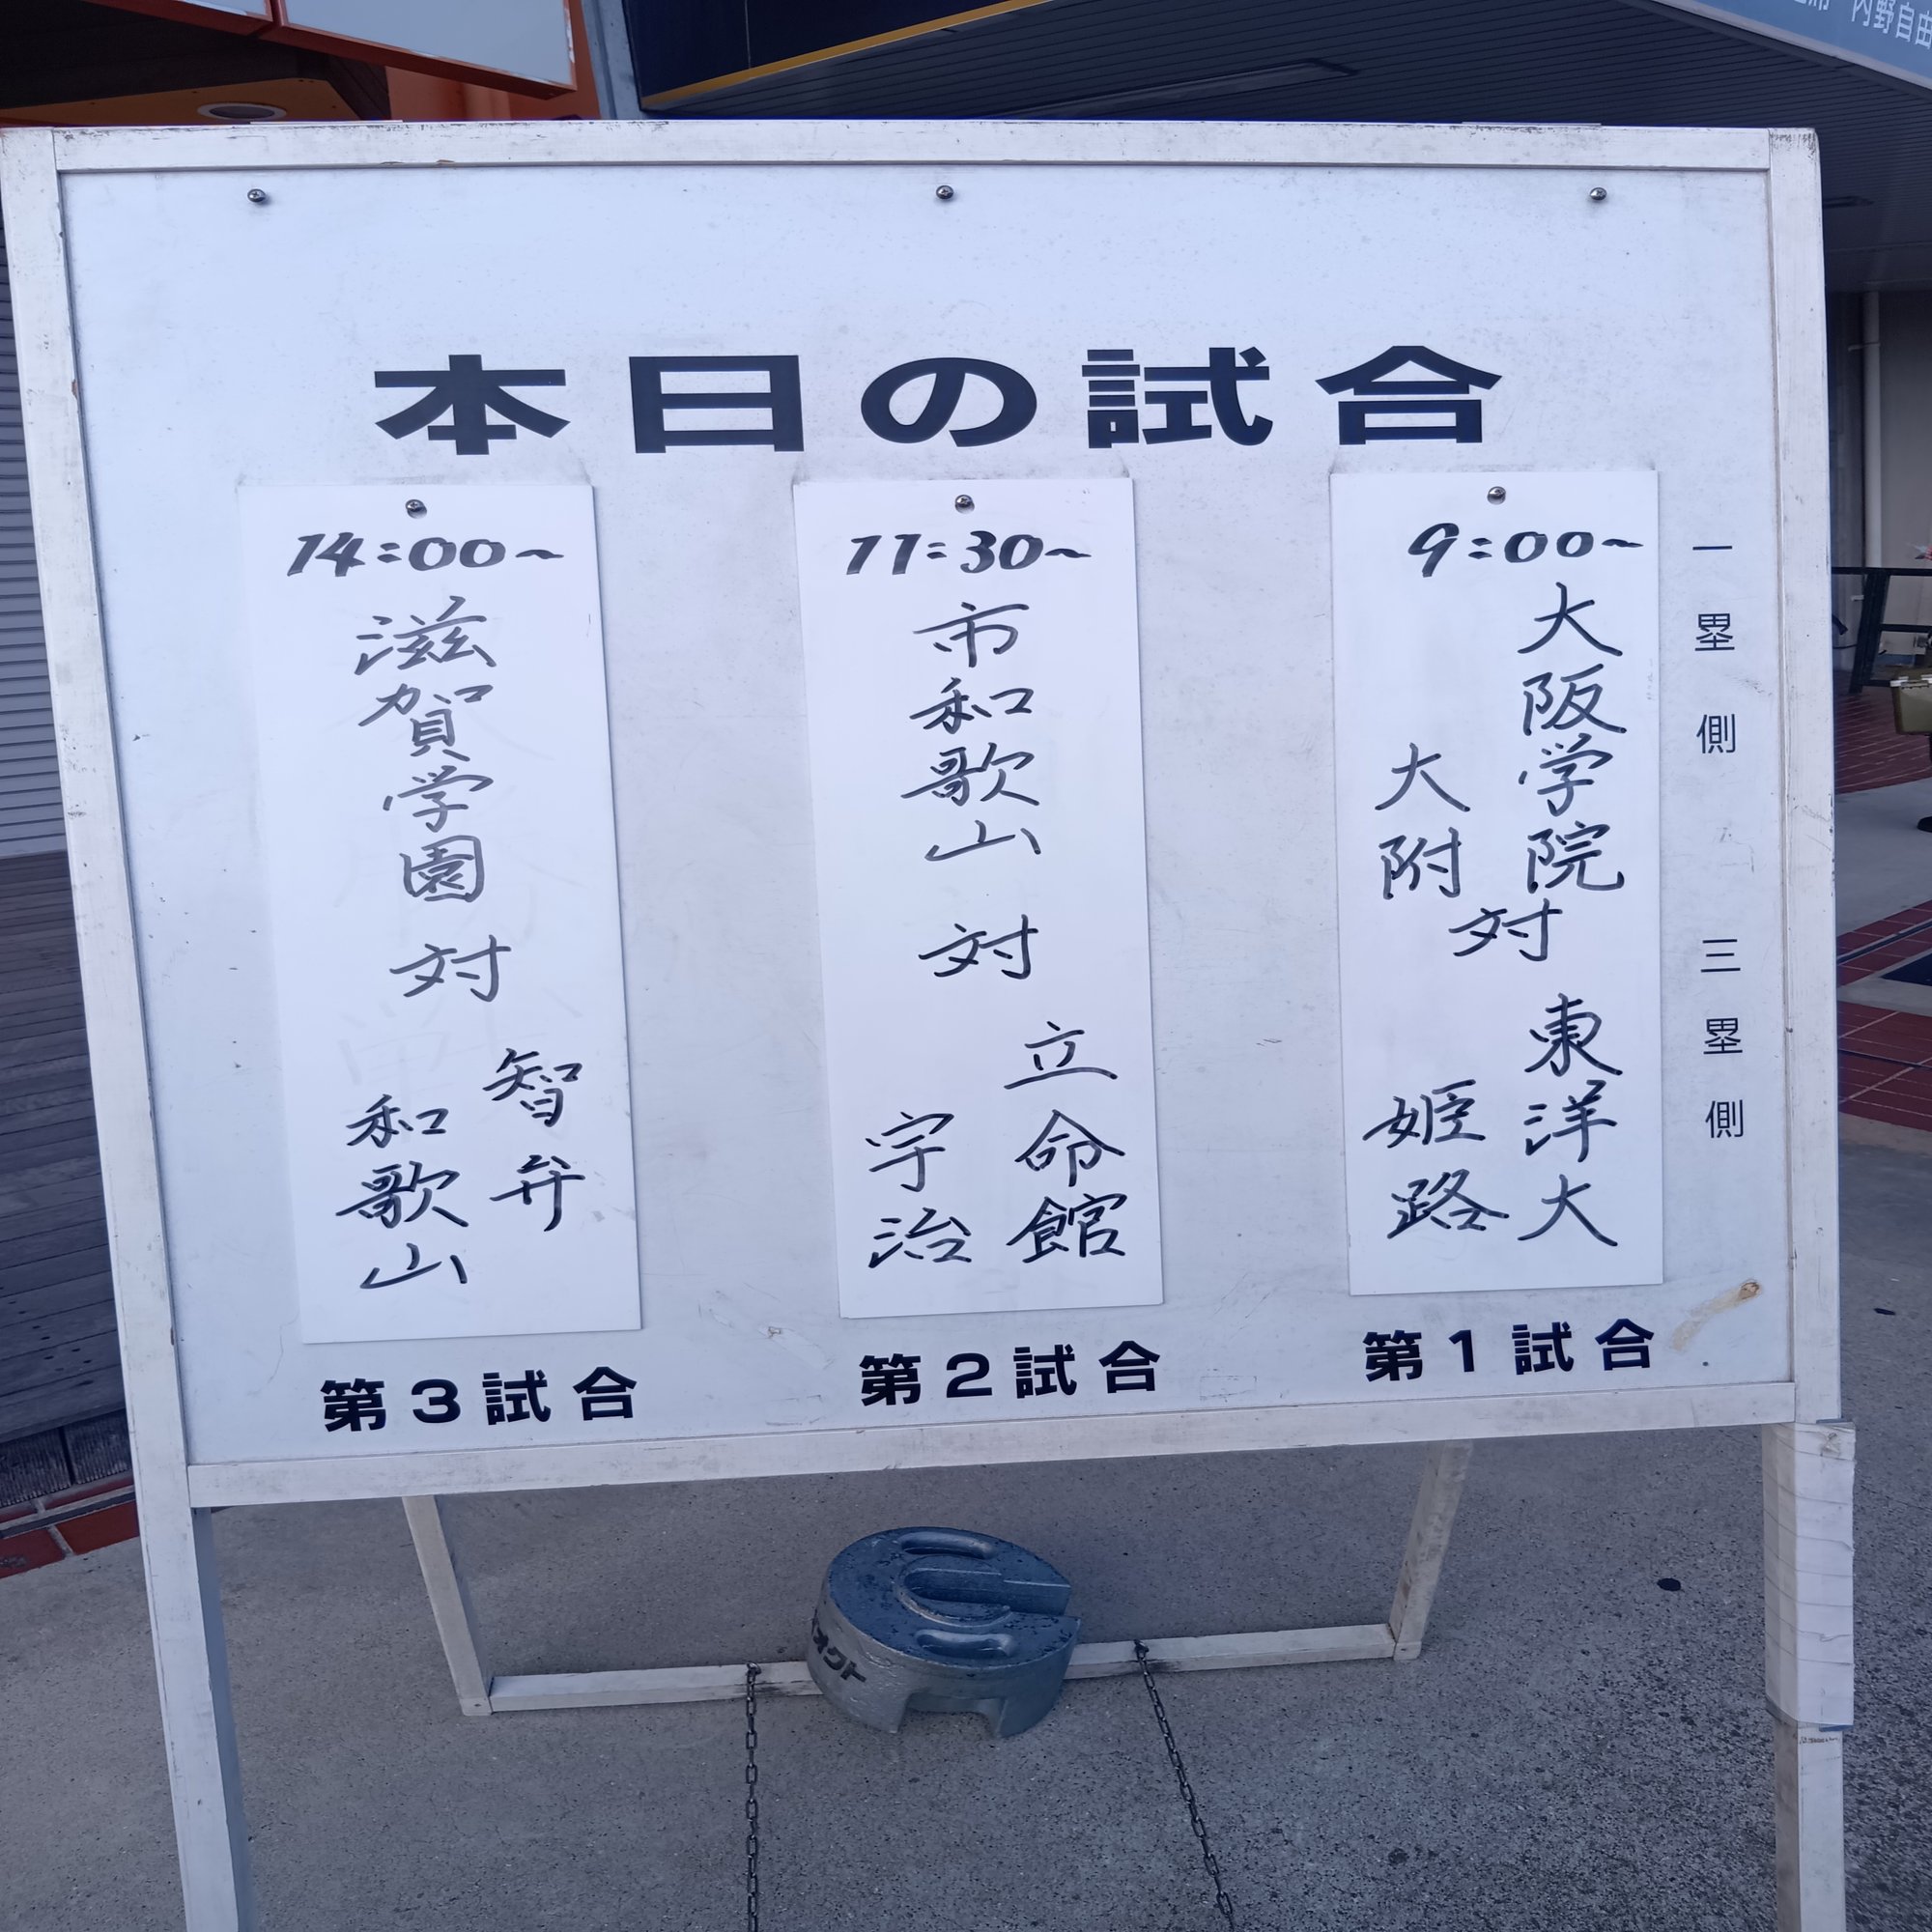 内野自由
本日の試合
一塁側
三塁側
9:00~
大阪学院
大附
対
東洋大
姫路
第1試合
11:30~
市和歌山
対
立命館
宇治
第2試合
14:00~
滋賀学園
対
智弁
和歌山
第3試合